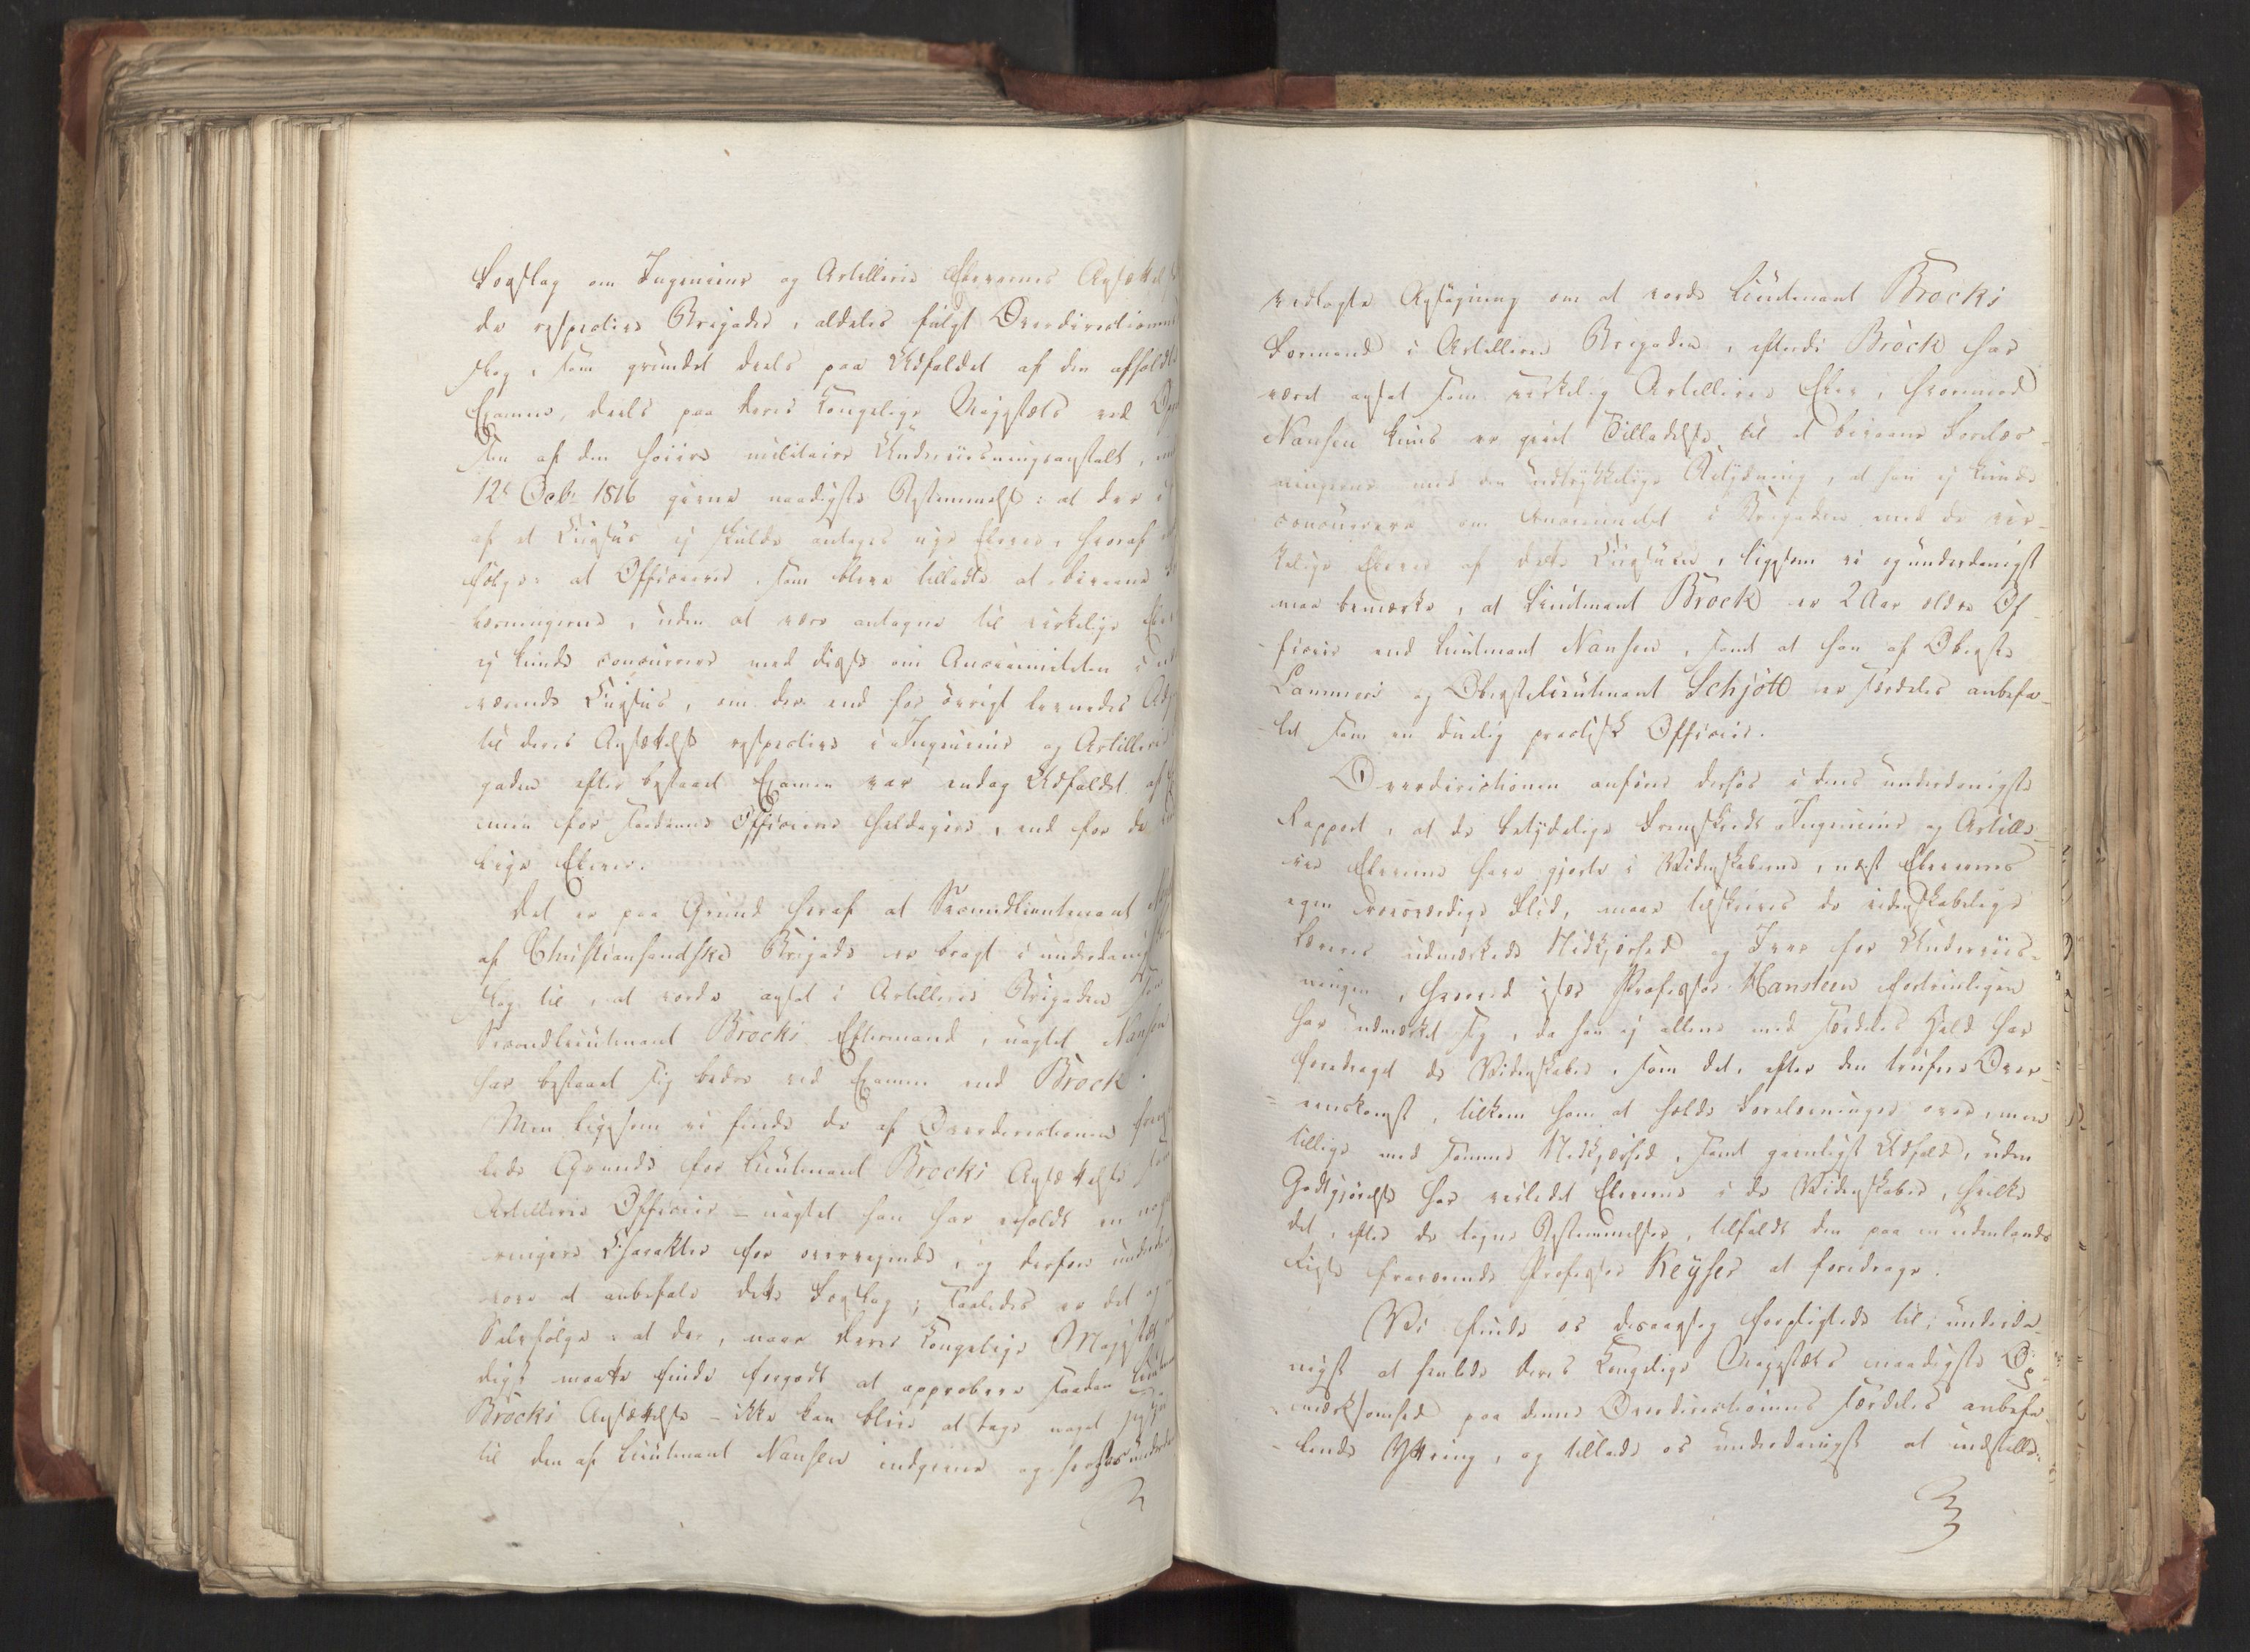 Forslag om Ingenieur og Artillerie Elevernes Ansættelse
de respective Brigader, aldeles fulgt Overdirectionens
slag, som grundet deels paa Udfaldet af den afholdte
Examen, deels paa Deres Kongelige Majestæts ved
sen af den høiere militaire Underviisningsanstalt,
12te Octbr 1816 givne naadigste Bestemmelse: at der
af et Cursus ej skulde antages nye Elever, hvoraf
følger at Officierer, som bleve tilladte at bivaane
læsningerne, uden at være antagne til virkelige
ej kunde concurrere med disse om Ancienniteten i
værende Cursus, om der end for øvrigt levnedes
til deres Ansættelse respective i Ingenieur og Artillerie
gaden efter bestaaet Examen var endog Udfaldet af
men for saadanne Officierer heldigere, end for de
lige Elever.
Det er paa Grund heraf at Secondlieutenant
af Christiansandske Brigade er bragt i underdanigst
slag til, at vorde ansat i Artillerie Brigaden som
Secondlieutenant Brocks Eftermand, uagtet Nansen
har bestaaet sig bedre ved Examen end Brock.
Men ligesom vi finde de af Overdirectionen
lede Grunde for Lieutenant Brocks Ansættelse som
Artillerie Officier – uagtet han har erholdt en noget
ringere Charakter for overveiende, og derfor
vove at anbefale dette Forslag; saaledes er det og
Selvfølge: at der, naar Deres Kongelige Majestæt
digst maatte finde forgodt at approbere saadan
Brocks Ansættelse – ikke kan blive at tage noget
til den af Lieutenant Nansen indgivne og
vedlagte Ansøgning om at vorde Lieutenant Brocks
Formand i Artillerie Brigaden, efterdi Brock har
været ansat som virkelig Artillerie Elev, hvorimod
Nansen kuns er givet Tilladelse til at bivaane Forelæs-
ningerne med den udtrykkelige Betydning, at han ej kunde
concurrere om Ancienniteten i Brigaden med de vir-
kelige Elever af dette Cursus, ligesom vi og underdanigst
maa bemærke, at Lieutenant Brock er 2 Aar ældre Of-
ficier end Lieutenant Nansen, samt at han af Oberste
Lammers og Oberstelieutenant Schjøtt er særdeles anbefa-
let som en duelig practisk Officier.
Overdirectionen anfører derhos i dens underdanigste
Rapport, at de betydelige Fremskridt Ingenieur og Artille-
rie Eleverne have gjorte i Videnskaberne, næst Elevernes
egen roesværdige Flid, maae tilskrives de videnskabelige
Læreres udmærkede Nidkjerhed og Iver for Underviis-
ningen, hvorved især Professor Hansteen fortrinligen
har udmærket sig, da han ej allene med særdeles Held har
foredraget de Videnskaber, som det, efter den trufne Over-
eenskomst, tilkom ham at holde Forelæsninger over, men
tillige med samme Nidkjerhed, samt gavnligst Udfald, uden
Godtgjørelse har veiledet Eleverne i de Videnskaber, hvilke
det, efter de tagne Bestemmelser, tilfaldt den paa en udenlands
Reise fraværende Professor Keyser at foredrage.
Vi finde os desaarsag forpligtede til, underda-
nigst at henlede Deres Kongelige Majestæts naadigste Op-
mærksomhed paa denne Overdirectionens særdeles anbefa-
lende Yttring, og tillade os underdanigst at indstille: